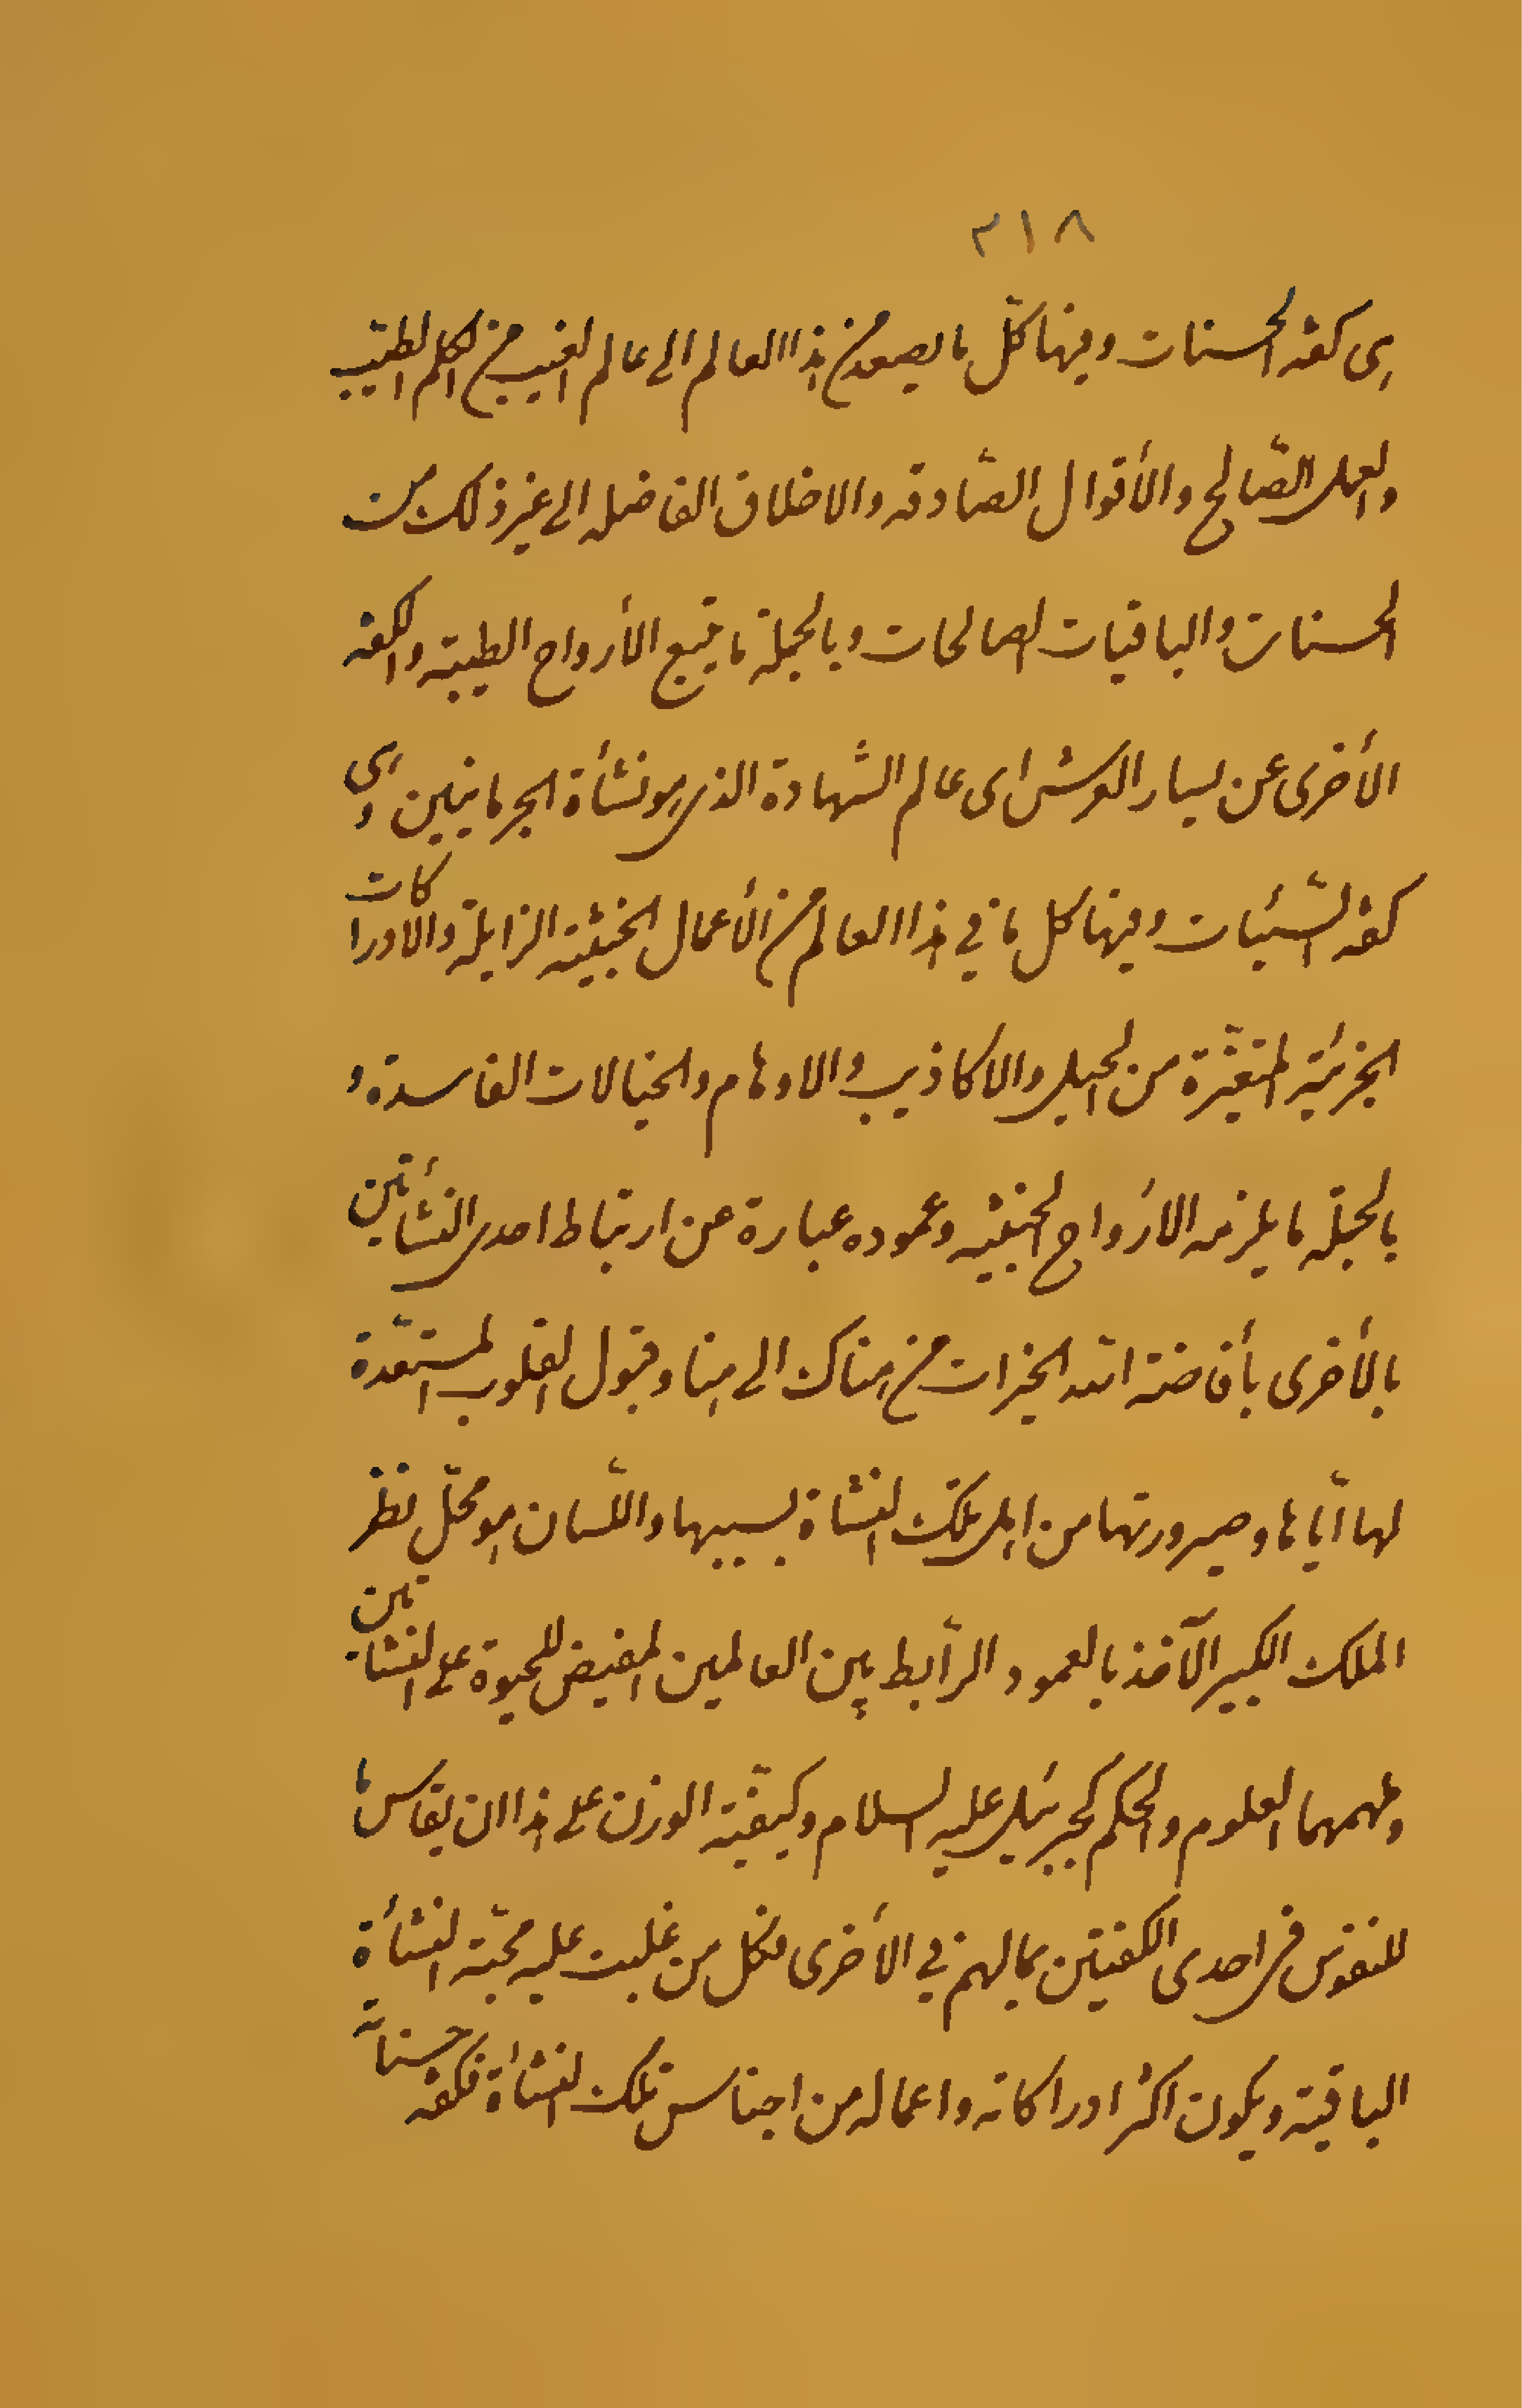 ٣١٨
هى كفة الحسنات وفيها كلّ ما يصعد من هذا العالم الى عالم الغيب من الكلم الطيّب
والعمل الصّالح والأقوال الصّادقه والاخلاق الفاضله الى غير ذلك من
الحسنات والباقيات الصالحات وبالجملة ما يتبع الأرواح الطيبة والكفه
الأخرى عن يسار العرش اى عالم الشّهادة الذى هو نشأة الجرمانيين وهى
كفه السّيّئات وفيها كل ما فى هذا العالم من الأعمال الخبيثة الزايلة والادراكات
الجزئيّة المتغيّرة من الحيل والاكاذيب والاوهام والخيالات الفاسدة و
بالجملة ما يلزمه الارواح الخبيثه وعموده عبارة عن ارتباط احدى النشأتين
بالأخرى بأفاضة الله الخيرات من هناك الى هنا وقبول القلوب المستعّدة
لها ايّاها وصيرورتها من اهل تلك النشاة بسببها واللّسان هو محلّ نظر
الملك الكبير الآخذ بالعمود الرّابط بين العالمين المفيض للحيوة على النشاتين
وملهمهما العلوم والحكم كجبرئيل عليه السلام وكيفيّة الوزن على هذا ان يقاس ما
للنفوس فى احدى الكفتين بما لهم فى الأخرى فكل من غلبت عليه محبّة النشأة
الباقية ويكون اكثر ادراكاته واعماله من اجناس تلك النشأة فكفه حسناته